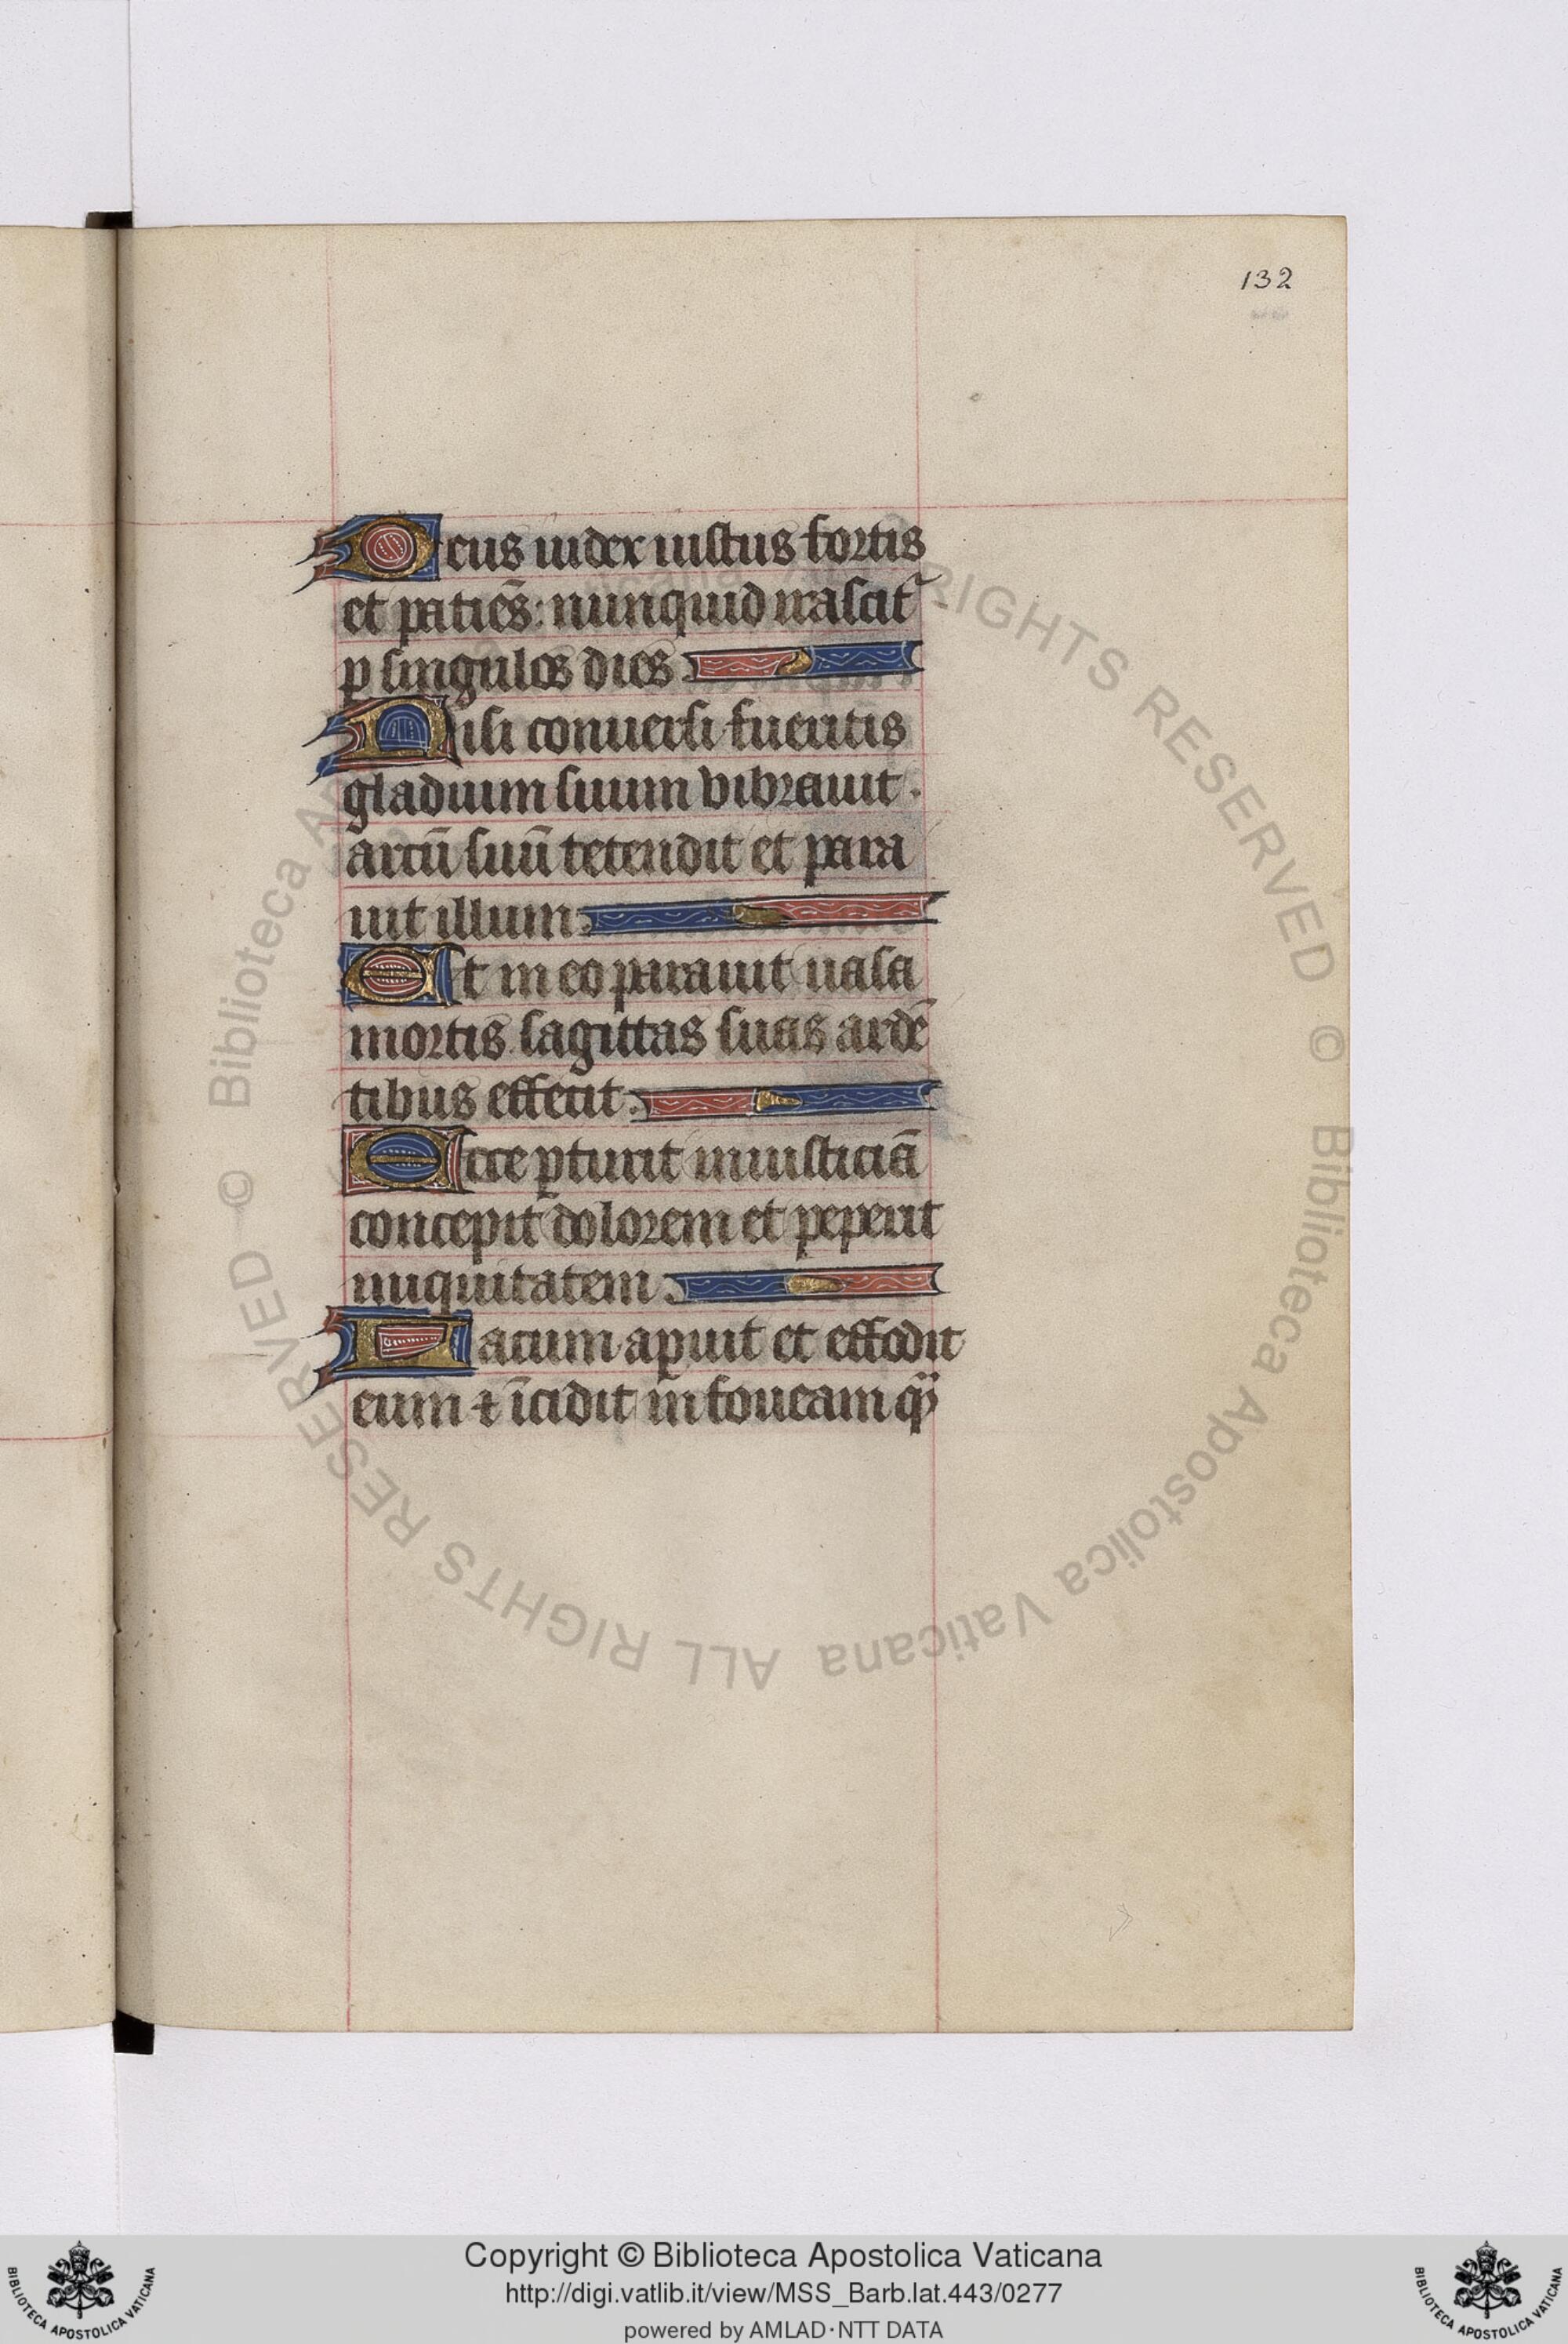 132
Deus iudex iustus fortis
et patiēs: nunquid irascit᷑
ꝑ singulos dies
Nisi conuersi fueritis
gladium suum vibrauit.
arcū suū tetendit et para
uit illum:
Et in eo parauit uasa
mortis sagittas suas ardē
tibus effecit:
Ecce ꝑturit iniusticiā
concepit dolorem et peperit
iniquitatem:
Lacum apuit et effodit
eum ⁊ īcidit in foueam qͣ
© Biblioteca Apostolica Vaticana ALL RIGHTS RESERVED
Copyright © Biblioteca Apostolica Vaticana
http://digi.vatlib.it/view/MSS_Barb.lat.443/0277
powered by AMLAD·NTT DATA
BIBLIOTECA APOSTOLICA VATICANA
BIBLIOTECA APOSTOLICA VATICANA